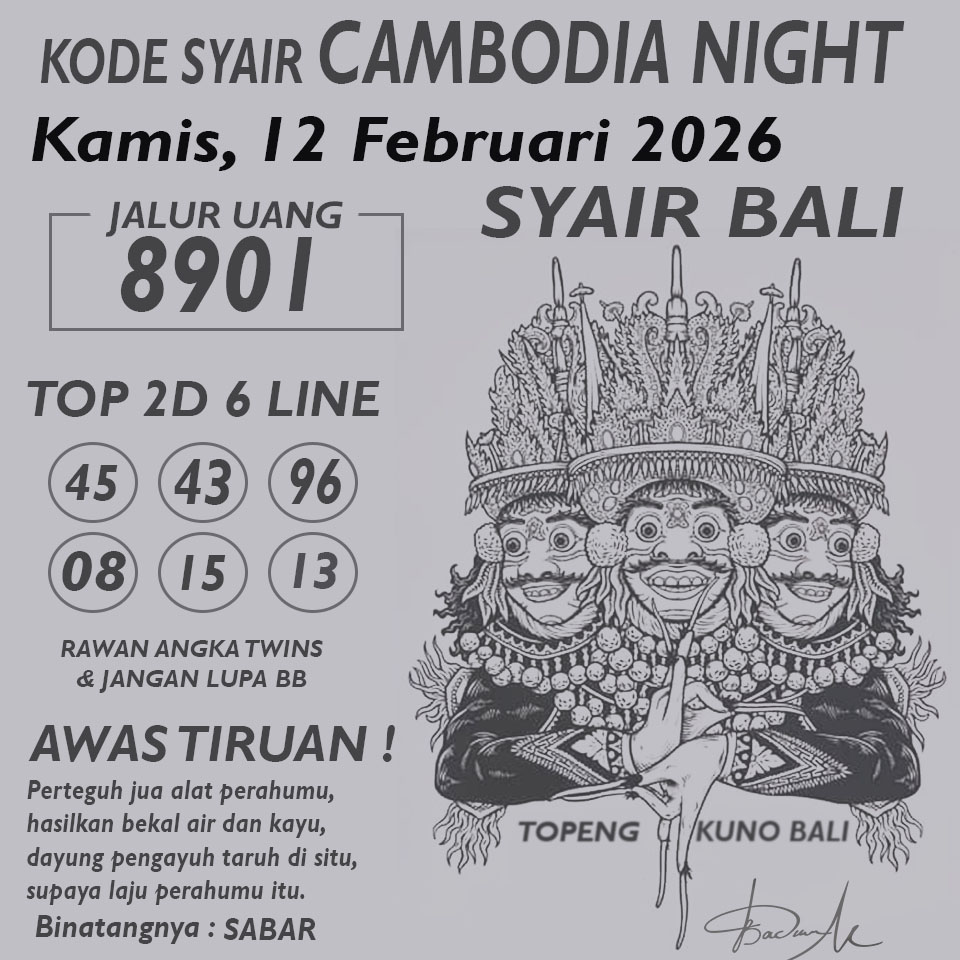 KODE SYAIR CAMBODIA NIGHT
Kamis, 12 Februari 2026
SYAIR BALI
JALUR UANG
8901
TOP 2D 6 LINE
45 43 96
08 15 13
RAWAN ANGKA TWINS
& JANGAN LUPA BB
AWAS TIRUAN !
Perteguh jua alat perahumu,
hasilkan bekal air dan kayu,
dayung pengayuh taruh di situ,
supaya laju perahumu itu.
Binatangnya : SABAR
TOPENG KUNO BALI